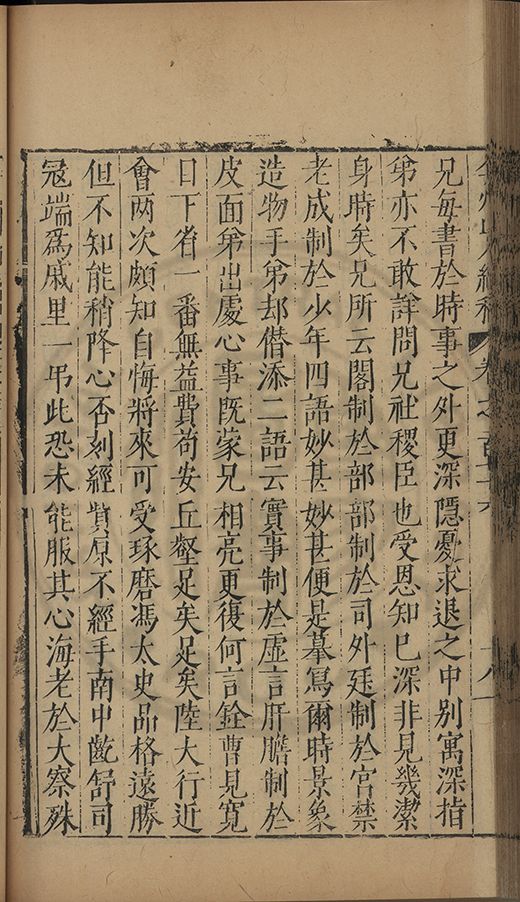 兄每書於時事之外更深隱憂求退之中別寓深指
弟亦不敢詳問兄社稷臣也受恩知已深非見幾潔
身時矣兄所云閣制於部部制於司外廷制於宮禁
老成制於少年四語妙甚妙甚便是摹寫爾時景象
造物手弟却僭添二語云實事制於虛言肝膽制於
皮面弟出處心事既蒙兄相亮更復何言銓曹見寬
日下省一番無益費苟安丘壑足矣足矣陸大行近
會两次頗知自悔將來可受琢磨馮太史品格遠勝
但不知能稍降心否刻經貲原不經手南中齕舒司
冦端為戚里一弔此恐未能服其心海老於大察殊